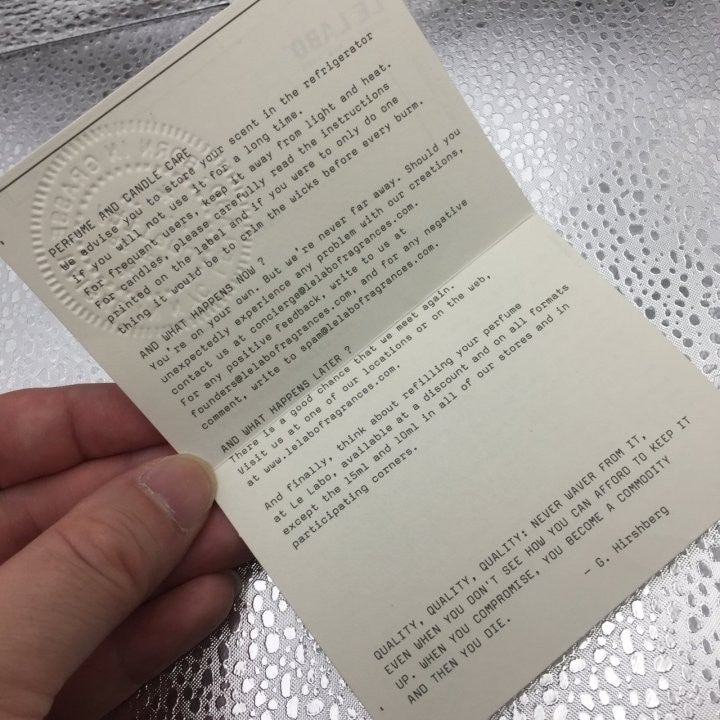 LE LABO
PERFUME AND CANDLE CARE
We advise you to store your scent in the refrigerator
if you will not use it for a long time.
For frequent users, keep it away from light and heat.
For candles, please carefully read the instructions
printed on the label and if you were to only do one
thing it would be to trim the wicks before every burn.
AND WHAT HAPPENS NOW ?
You're on your own. But we're never far away. Should you
unexpectedly experience any problem with our creations,
contact us at concierge@lelabofragrances.com.
For any positive feedback, write to us at
founders@lelabofragrances.com, and for any negative
comment, write to spam@lelabofragrances.com.
AND WHAT HAPPENS LATER ?
There is a good chance that we meet again.
Visit us at one of our locations or on the web,
at www.lelabofragrances.com.
And finally, think about refilling your perfume
at Le Labo, available at a discount and on all formats
except the 15ml and 10ml in all of our stores and in
participating corners.
QUALITY, QUALITY, QUALITY: NEVER WAVER FROM IT,
EVEN WHEN YOU DON'T SEE HOW YOU CAN AFFORD TO KEEP IT
UP. WHEN YOU COMPROMISE, YOU BECOME A COMMODITY
AND THEN YOU DIE.
- G. Hirshberg